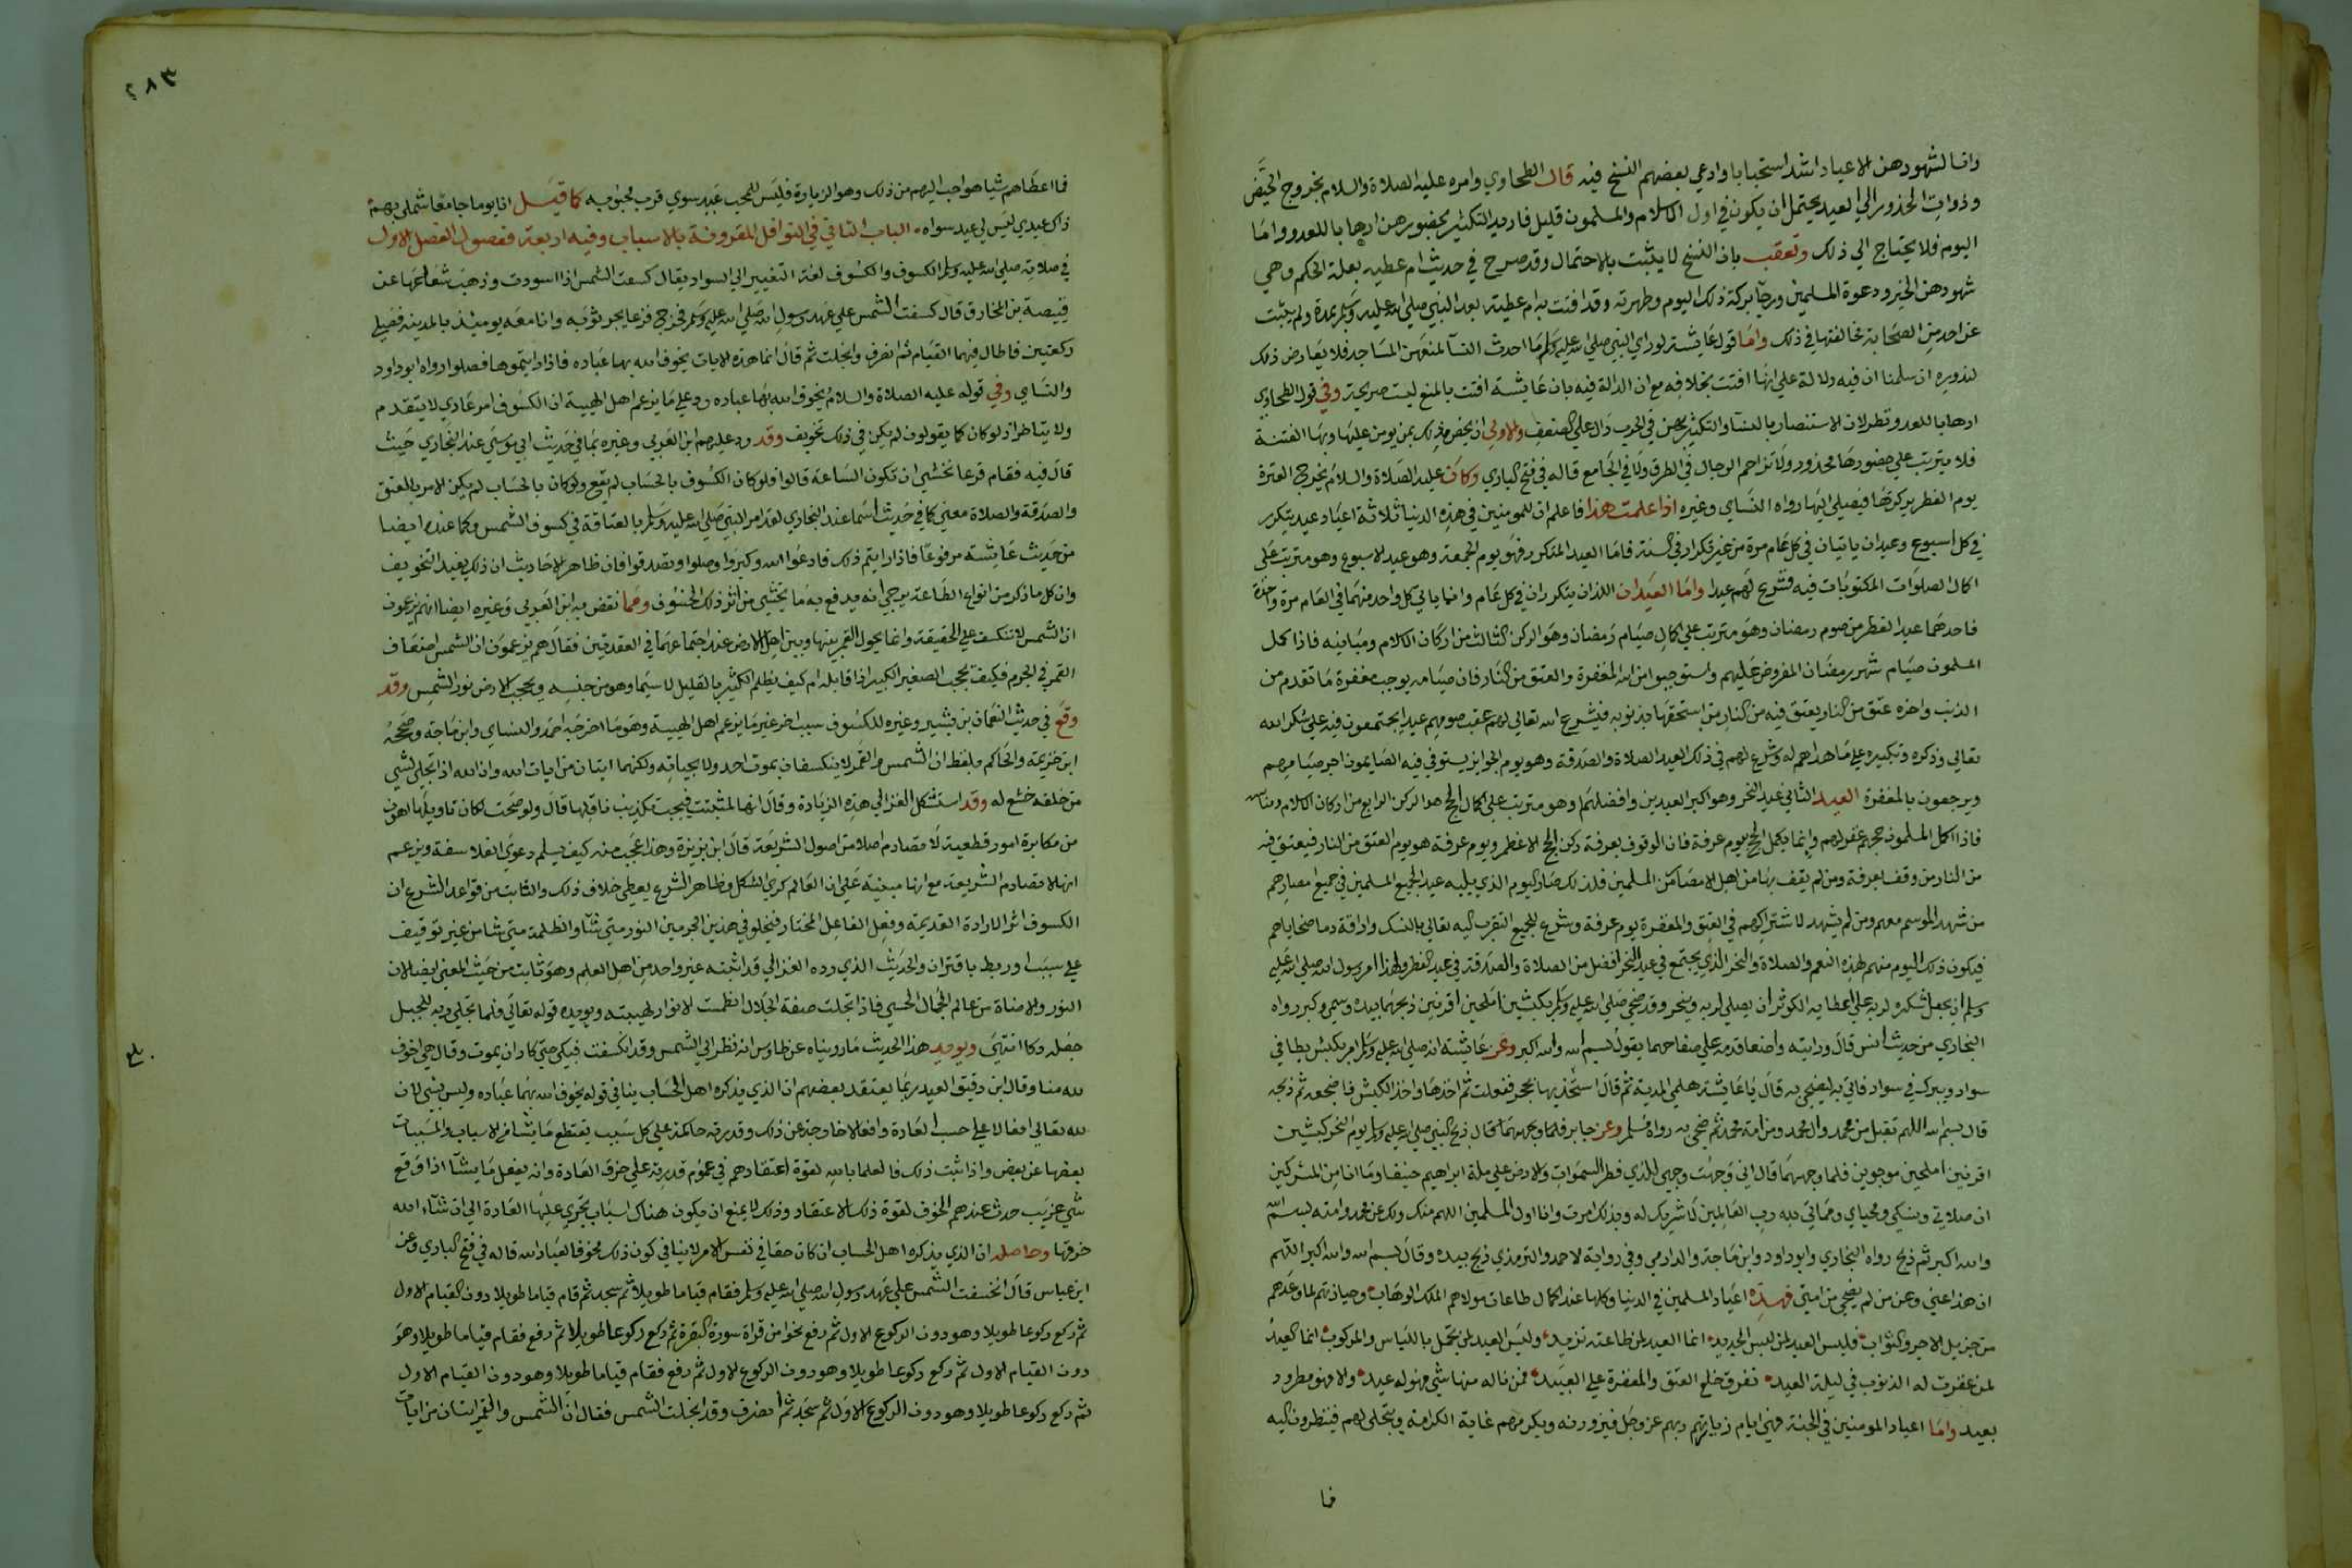 وانا لشهودهن الاعياد اشد استحبابا وادعي بعضهم النسخ فيه قال الطحاوي وامره عليه الصلاة والسلام بخروج الحيض
وذوات الخدور الي العيد يحتمل ان يكون في اول الاسلام والمسلمون قليل فاريد التكثير بحضورهن ارهابا للعدو واما
اليوم فلا يحتاج الي ذلك وتعقب بان النسخ لا يثبت بالاحتمال وقد صرح في حديث ام عطيه بعلة الحكم وهي
شهودهن الخير ودعوة المسلمين ورجا بركة ذلك اليوم وطهرته وقد افتت به ام عطية بعد النبي صلي الله عليه وسلم بمدة ولم يثبت
عن احد من الصحابة مخالفتها في ذلك واما قول عايشة لو راي النبي صلي الله عليه وسلم ما احدث النسآ لمنعهن المساجد فلا يعارض ذلك
لندوره ان سلمنا ان فيه دلالة علي انها افتت بخلافه مع ان الدلالة فيه بان عايشة افتت بالمنع ليست صريحة وفي قول الطحاوي
ارهابا للعدو نظر لان الاستنصار بالنسآ والتكثير بهن في الحرب دال علي الضعف والاولي ان يخص ذلك بمن يومن عليها وبها الفتنة
فلا يترتب علي حضورها محذور ولا تزاحم الرجال في الطرق ولا في الجامع قاله في فتح الباري وكان عليه الصلاة والسلام يخرج العنزة
يوم الفطر يركزها فيصلي اليها رواه النساي وغيره اذا علمت هذا فاعلم ان للمومنين في هذه الدنيا ثلاثة اعياد عيد يتكرر
في كل اسبوع وعيدان ياتيان في كل عام مرة من غير تكرار في السنة فاما العيد المتكرر فهو يوم الجمعة وهو عيد الاسبوع وهو مترتب علي
اكمال الصلوات المكتوبات فيه فشرع لهم عيدا واما العيدان اللذان يتكرران في كل عام وانما ياتي كل واحد منهما في العام مرة واحدة
فاحدهما عيد الفطر من صوم رمضان وهو مترتب علي اكمال صيام رمضان وهو الركن الثالث من اركان الاسلام ومبانيه فاذا كمل
المسلمون صيام شهر رمضان المفروض عليهم واستوجبوا من الله المغفرة والعتق من النار فان صيامه يوجب مغفرة ما تقدم من
الذنب واخره عتق من النار يعتق فيه من النار من استحقها بذنوبه فيشرع الله تعالي لهم عقب صومهم عيدا يجتمعون فيه علي شكر الله
تعالي وذكره وتكبيره علي ما هداهم له وشرع لهم في ذلك العيد الصلاة والصدقة وهو يوم الجوايز يستوفي فيه الصايمون اجر صيامهم
ويرجعون بالمغفرة العيد الثاني عيد النحر وهو اكبر العيدين وافضلهما وهو مترتب علي اكمال الحج هو الركن الرابع من اركان الاسلام ومبانيه
فاذا اكمل المسلمون حجهم غفر لهم وانما يكمل الحج بيوم عرفة فان الوقوف بعرفة ركن الحج الاعظم ويوم عرفة هو يوم العتق من النار فيعتق فيه
من النار من وقف بعرفة ومن لم يقف بها من اهل الامصار من المسلمين فلذلك صار اليوم الذي يليه عيدا لجميع المسلمين في جميع امصارهم
من شهد الموسم معهم ومن لم يشهد لاشتراكهم في العتق والمغفرة يوم عرفة وشرع للجميع التقرب اليه تعالي بالنسك واراقة دما ضحاياهم
فيكون ذلك اليوم منهم لهذه النعم والصلاة والنحر الذي يجتمع في عيد النحر افضل من الصلاة والصدقة في عيد الفطر ولهذا امر رسول الله صلي الله عليه
وسلم ان يجعل شكره لربه علي اعطايه الكوثر ان يصلي لربه وينحر وقد ضحي صلي الله عليه وسلم بكبشين املحين اقرنين ذبحهما بيده وسمي وكبر رواه
البخاري من حديث انس قال ورايته واضعا قدمه علي صفاحهما يقول بسم الله والله اكبر وعن عايشة انه صلي الله عليه وسلم امر بكبش يطا في
سواد ويبرك في سواد فاتي به ليضحي به قال يا عايشة هلمي المدية ثم قال استحذيها بحجر ففعلت ثم اخذها واخذ الكبش فاضجعه ثم ذبحه
قال بسم الله اللهم تقبل من محمد وال محمد ومن امة محمد ثم ضحي به رواه مسلم وعن جابر فلما وجههما قال ذبح النبي صلي الله عليه وسلم يوم النحر كبشين
اقرنين املحين موجوين فلما وجههما قال اني وجهت وجهي للذي فطر السموات والارض علي ملة ابراهيم حنيفا وما انا من المشركين
ان صلاتي ونسكي ومحياي ومماتي لله رب العالمين لا شريك له وبذلك امرت وانا اول المسلمين اللهم منك ولك عن محمد وامته بسم الله
والله اكبر ثم ذبح رواه البخاري وابو داود وابن ماجة والدارمي وفي رواية لاحمد والترمذي ذبح بيده وقال بسم الله والله اكبر اللهم
ان هذا عني وعن من لم يضحي من امتي فهذه اعياد المسلمين في الدنيا وكلها عند اكمال طاعات مولاهم الملك الوهاب وحيازتهم لما وعدهم
من جزيل الاجر والثواب فليس العيد لمن لبس الجديد انما العيد لمن طاعته تزيد وليس العيد لمن تجمل باللباس والمركوب انما العيد
لمن غفرت له الذنوب في ليلة العيد تفرق خلع العتق والمغفرة علي العبيد فمن ناله منها شي فهو له عيد والا فهو مطرود
بعيد واما اعياد المومنين في الجنة فهي ايام زيارتهم ربهم عز وجل فيزورونه ويكرمهم غاية الكرامة ويتجلي لهم فينظرون اليه
فا
٢٨٣
فما اعطاهم شيا هو احب اليهم من ذلك وهو الزيادة فليس للمحب عيد سوي قرب محبوبه كما قيل ان يوما جامعا شملي بهم
ذاك عيدي ليس لي عيد سواه الباب الثاني في النوافل المقرونة بالاسباب وفيه اربعة فصول الفصل الاول
في صلاته صلي الله عليه وسلم الكسوف والكسوف لغة التغيير الي السواد يقال كسفت الشمس اذا اسودت وذهب شعاعها عن
قبيصة بن المخارق قال كسفت الشمس علي عهد رسول الله صلي الله عليه وسلم فخرج فزعا يجر ثوبه وانا معه يوميذ بالمدينة فصلي
ركعتين فاطال فيهما القيام ثم انصرف وانجلت ثم قال انما هذه الايات يخوف الله بها عباده فاذا رايتموها فصلوا رواه ابو داود
والنساي وفي قوله عليه الصلاة والسلام يخوف الله بها عباده رد علي ما يزعم اهل الهيية ان الكسوف امر عادي لا يتقدم
ولا يتاخر اذ لو كان كما يقولون لم يكن في ذلك تخويف وقد رد عليهم ابن العربي وغيره بما في حديث ابي موسي عند البخاري حيث
قال فيه فقام فزعا نخشي ان تكون الساعة قالوا فلو كان الكسوف بالحساب لم يقع ولو كان بالحساب لم يكن للامر بالعتق
والصدقة والصلاة معني كما في حديث اسما عند البخاري لقد امر النبي صلي الله عليه وسلم بالعتاقة في كسوف الشمس وكما عنده ايضا
من حديث عايشة مرفوعا فاذا رايتم ذلك فادعوا الله وكبروا وصلوا وتصدقوا فان ظاهر الاحاديث ان ذلك يفيد التخويف
وان كل ما ذكر من انواع الطاعة يرجي انه يدفع به ما يخشي من اثر ذلك الخسوف ومما نقض به ابن العربي وغيره ايضا انهم يزعمون
ان الشمس لا تنكسف علي الحقيقة وانما يحول القمر بينها وبين اهل الارض عند اجتماعهما في العقدتين فقال هم يزعمون ان الشمس اضعاف
القمر في الجرم فكيف يحجب الصغير الكبير اذا قابله ام كيف يظلم الكثير بالقليل لا سيما وهو من جنسه ويحجب الارض نور الشمس وقد
وقع في حديث النعمان بن بشير وغيره للكسوف سبب اخر غير ما يزعم اهل الهيية وهو ما اخرجه احمد والنساي وابن ماجة وصححه
ابن خزيمة والحاكم بلفظ ان الشمس والقمر لا ينكسفان بموت احد ولا بحياته ولكنهما ايتان من ايات الله وان الله اذا تجلي لشي
من خلقه خشع له وقد استشكل الغزالي هذه الزيادة وقال انها لم تثبت فيجب تكذيب ناقلها قال ولو صحت لكان تاويلها اهون
من مكابرة امور قطعية لا تصادم اصلا من اصول الشريعة قال ابن بزيزة وهذا عجيب منه كيف يسلم دعوي الفلاسفة ويزعم
انها لا تصادم الشريعة مع انها مبنية علي ان العالم كري الشكل وظاهر الشرع يعطي خلاف ذلك والثابت من قواعد الشرع ان
الكسوف اثر الارادة القديمة وفعل الفاعل المختار فيخلق في هذين الجرمين النور متي شآ والظلمة متي شا من غير توقيف
علي سبب او ربط باقتران والحديث الذي رده الغزالي قد اثبته غير واحد من اهل العلم وهو ثابت من حيث المعني ايضا لان
النور والاضاة من عالم الجمال الحسي فاذا تجلت صفة الجلال انطمست الانوار لهيبته ويويده قوله تعالي فلما تجلي ربه للجبل
جعله دكا انتهي ويويد هذا الحديث ما رويناه عن طاوس انه نظر الي الشمس وقد انكسفت فبكي حتي كاد ان يموت وقال هي اخوف
لله منا وقال ابن دقيق العيد ربما يعتقد بعضهم ان الذي يذكره اهل الحساب ينافي قوله يخوف الله بهما عباده وليس بشي لان
لله تعالي افعالا علي حسب العادة وافعالا خارجة عن ذلك وقدرته حاكمة علي كل سبب يقتطع ما يشا من الاسباب والمسببات
بعضها عن بعض واذا ثبت ذلك فالعلما بالله لقوة اعتقادهم في عموم قدرته علي خرق العادة وانه يفعل ما يشآ اذا وقع
شي غريب حدث عندهم الخوف لقوة ذلك الاعتقاد وذلك لا يمنع ان يكون هناك اسباب تجري عليها العادة الي ان شآء الله
خرقها وحاصله ان الذي يذكره اهل الحساب ان كان حقا في نفس الامر لا ينافي كون ذلك مخوفا لعباد الله قاله في فتح الباري وعن
ابن عباس قال انخسفت الشمس علي عهد رسول الله صلي الله عليه وسلم فقام قياما طويلا ثم سجد ثم قام قياما طويلا دون القيام الاول
ثم ركع ركوعا طويلا وهو دون الركوع الاول ثم رفع نحوا من قراة سورة البقرة ثم ركع ركوعا طويلا ثم رفع فقام قياما طويلا وهو
دون القيام الاول ثم ركع ركوعا طويلا وهو دون الركوع الاول ثم رفع فقام قياما طويلا وهو دون القيام الاول
ثم ركع ركوعا طويلا وهو دون الركوع الاول ثم سجد ثم انصرف وقد انجلت الشمس فقال ان الشمس والقمر ايتان من ايات